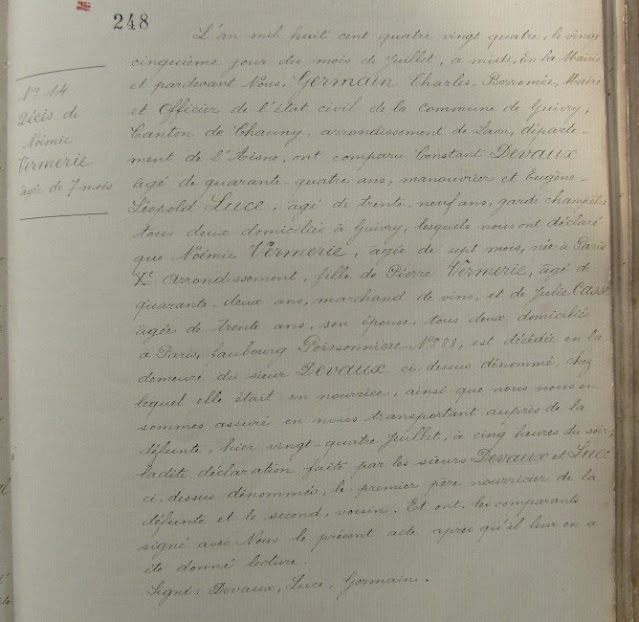 248
L'an mil huit cent quatre vingt quatre, le vingt
cinquième jour du mois de Juillet, à midi, en la Mairie
et pardevant Nous, Germain Charles-Borromée, Maire
et Officier de l'état civil de la Commune de Guivry,
Canton de Chauny, arrondissement de Laon, départe-
ment de l'Aisne, ont comparu Constant Devaux
âgé de quarante-quatre ans, manouvrier et Eugène-
Léopold Luce, âgé de trente-neuf ans, garde champêtre
tous deux domiciliés à Guivry, lesquels nous ont déclaré
que Noémie Vermerie, âgée de sept mois, née à Paris
Xe arrondissement, fille de Pierre Vermerie, âgé de
quarante-deux ans, marchand de vins, et de Julie Cassé
âgée de trente ans, son épouse, tous deux domiciliés
à Paris, faubourg Poissonnière No 88, est décédée en la
demeure du sieur Devaux ci-dessus dénommé chez
lequel elle était en nourrice, ainsi que nous nous en
sommes assuré en nous transportant auprès de la
défunte, hier vingt-quatre Juillet, à cinq heures du soir,
ladite déclaration faite par les sieurs Devaux et Luce
ci-dessus dénommés, le premier père nourricier de la
défunte et le second, voisin. Et ont, les comparants
signé avec Nous le présent acte après qu'il leur en a
été donné lecture.
Signé: Devaux, Luce, Germain.
No 14
Décès de
Noémie
Vermerie
âgée de 7 mois